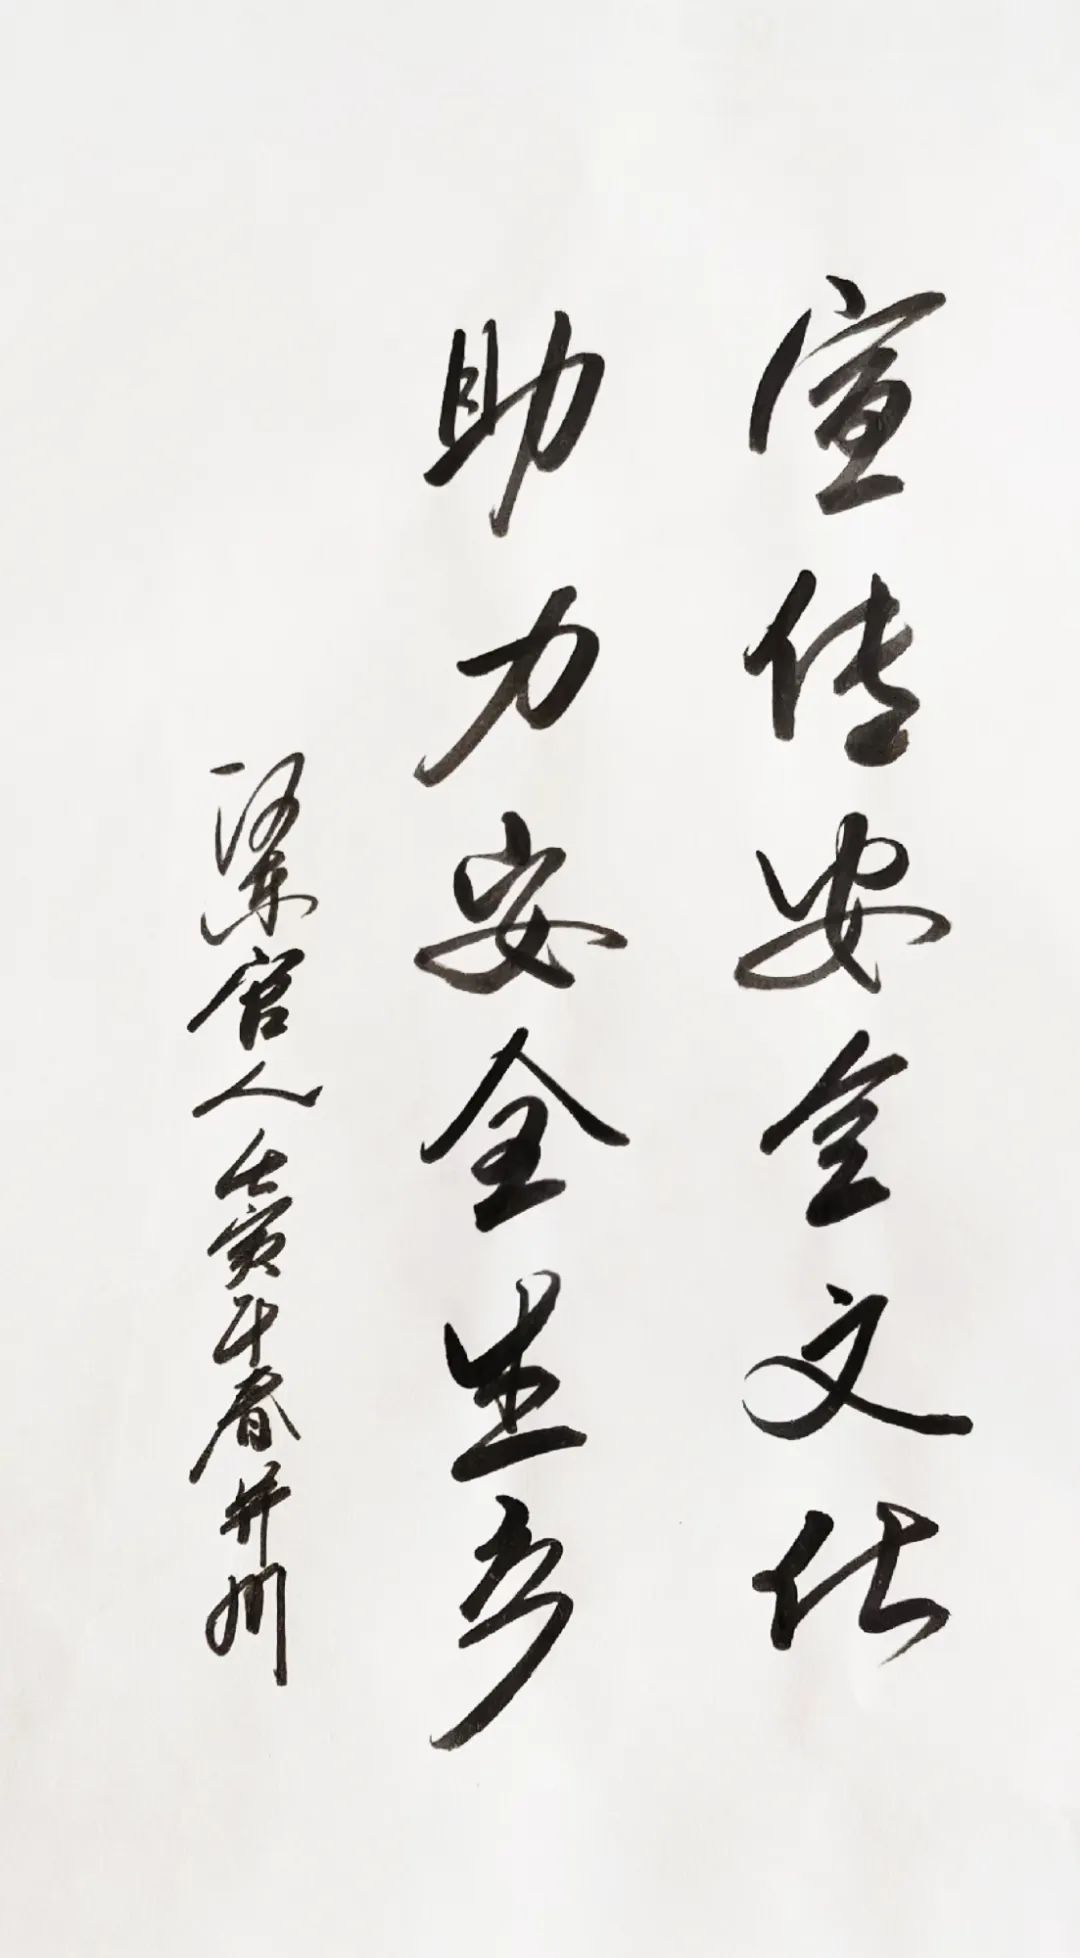 宣传安全文化
助力安全生产
河东官人壬寅年春并州